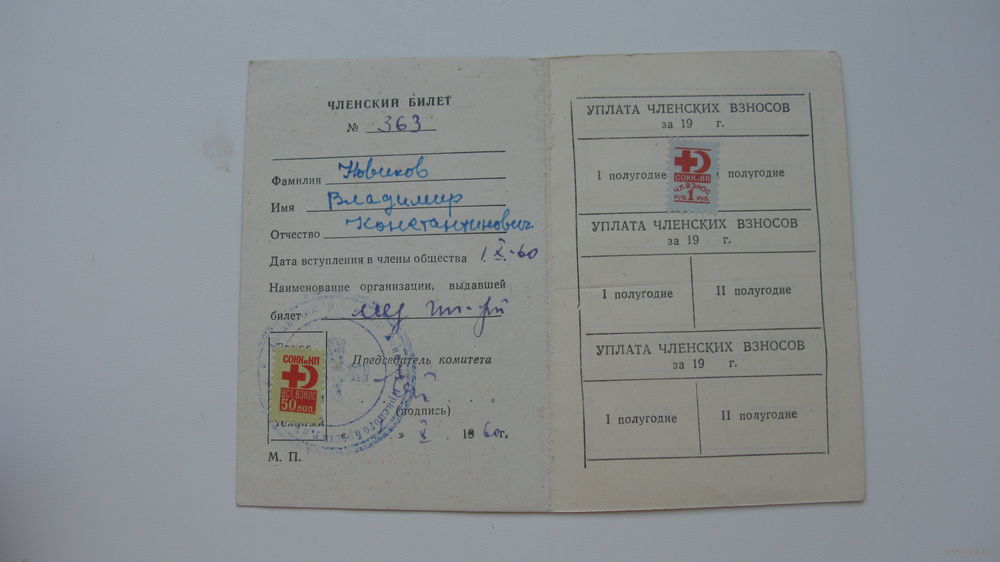 ЧЛЕНСКИЙ БИЛЕТ
№ 363
Фамилия Новиков
Имя Владимир
Отчество Константинович
Дата вступления в члены общества 1 X-60
Наименование организации, выдавшей
билет мед
Председатель комитета
СОКК и КП
ВСТ. ВЗНОС
50 коп.
(подпись)
" " X 1960г.
М. П.
УПЛАТА ЧЛЕНСКИХ ВЗНОСОВ
за 19 г.
I полугодие полугодие
СОКК и КП
ЧЛ. ВЗНОС
РУБ. 1 РУБ.
УПЛАТА ЧЛЕНСКИХ ВЗНОСОВ
за 19 г.
I полугодие II полугодие
УПЛАТА ЧЛЕНСКИХ ВЗНОСОВ
за 19 г.
I полугодие II полугодие